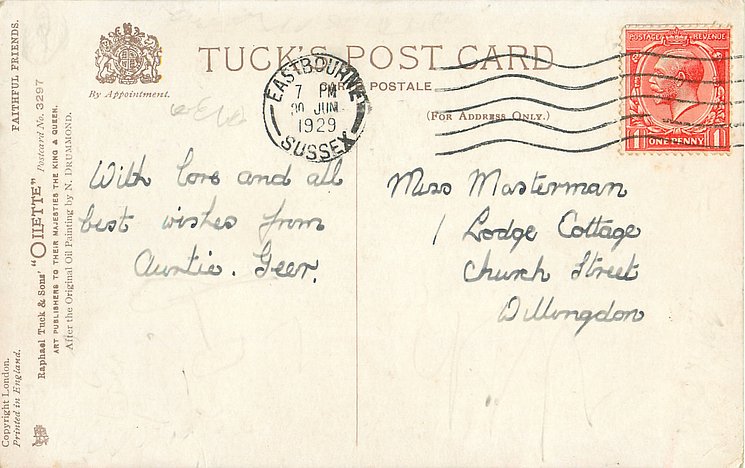 TUCK'S POST CARD
CARTE POSTALE
(FOR ADDRESS ONLY.)
By Appointment.
EASTBOURNE
7 PM
30 JUN
1929
SUSSEX
POSTAGE REVENUE
1 ONE PENNY 1
With love and all
best wishes from
Auntie. Geer.
Miss Masterman
1 Lodge Cottage
Church Street
Willingdon
FAITHFUL FRIENDS.
Raphael Tuck & Sons' "OILETTE" Postcard No. 3297
ART PUBLISHERS TO THEIR MAJESTIES THE KING & QUEEN.
After the Original Oil Painting by N. DRUMMOND.
Copyright London.
Printed in England.